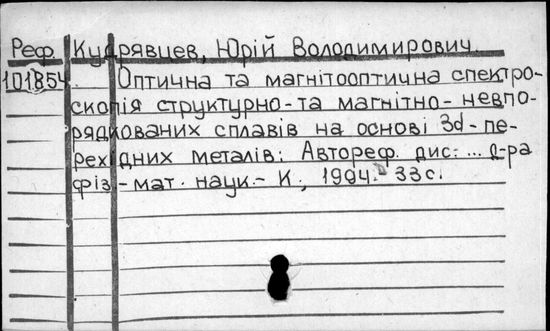 Реф. Кудрявцев, Юрій Володимирович.
101854 Оптична та магнітооптична спектро-
скопія структурно- та магнітно- невпо-
рядкованих сплавів на основі 3d-пе-
рехідних металів: Автореф. дис. ... д-ра
фіз-мат. наук.- К., 1994.- 33с.